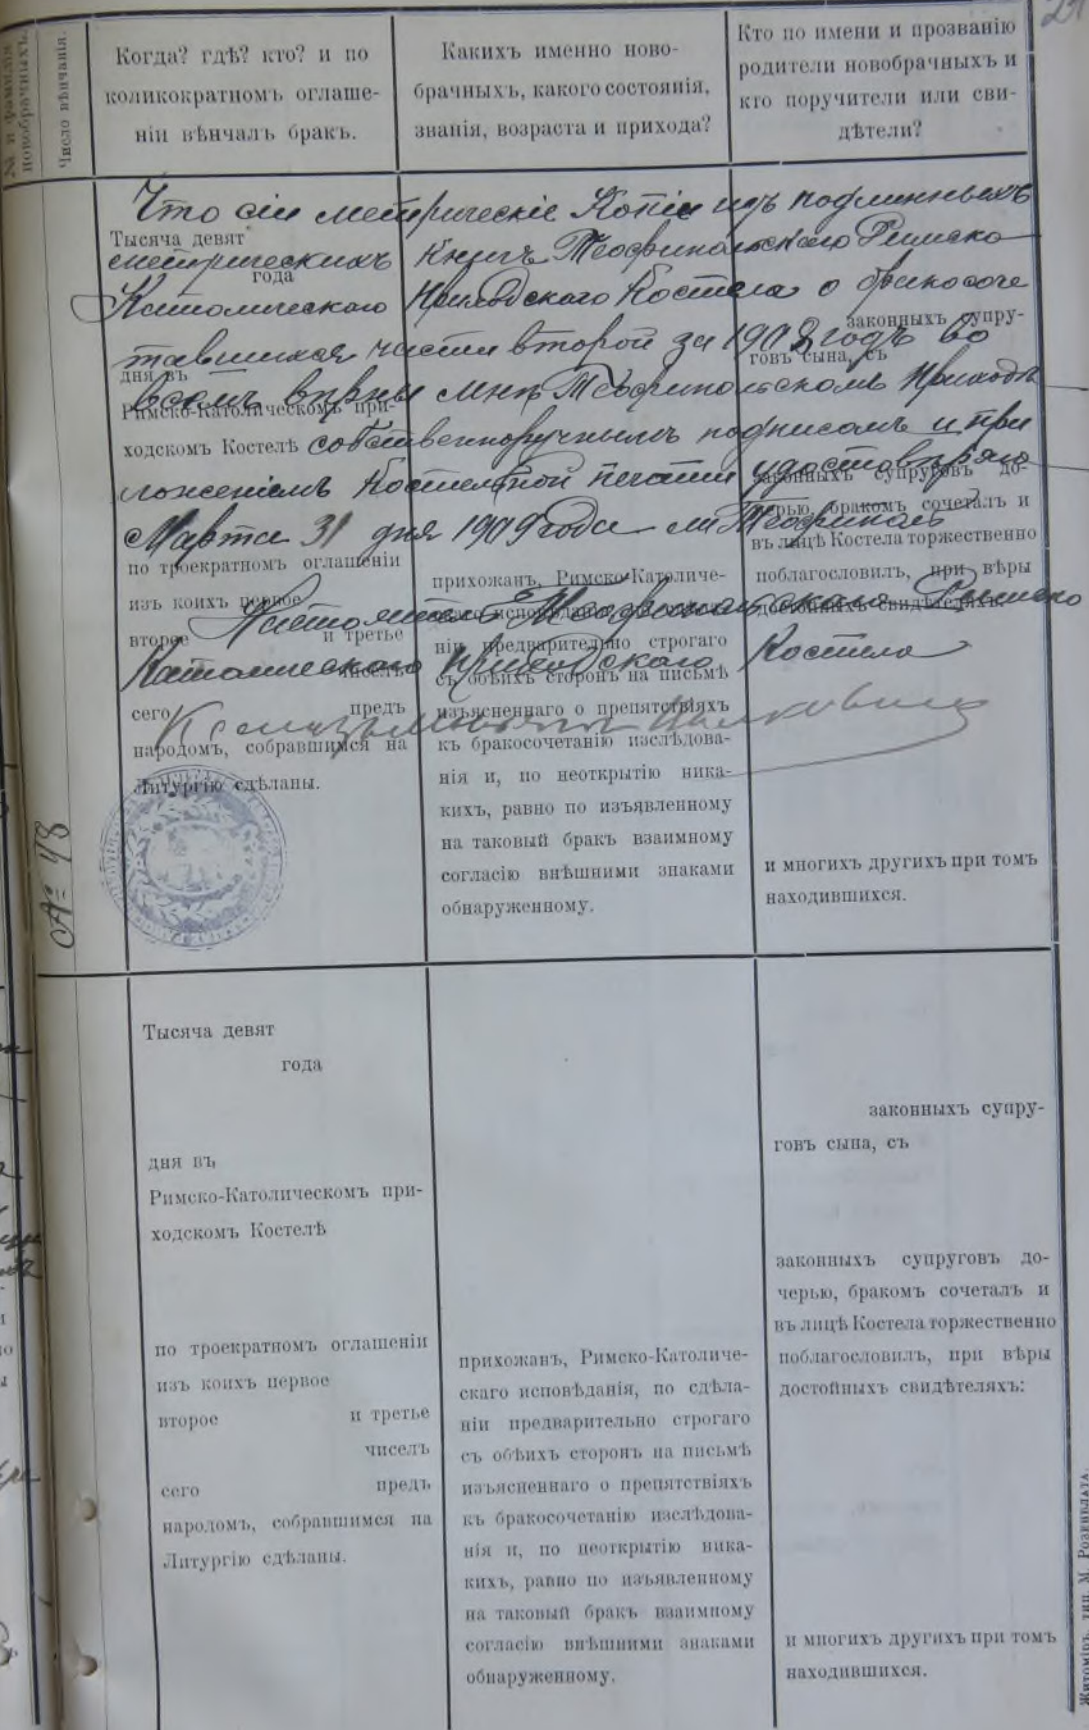 № и фамилія новобрачныхъ.
Число вѣнчанія.
Когда? гдѣ? кто? и по
коликократномъ оглаше-
ніи вѣнчалъ бракъ.
Какихъ именно ново-
брачныхъ, какого состоянія,
званія, возраста и прихода?
Кто по имени и прозванію
родители новобрачныхъ и
кто поручители или сви-
дѣтели?
Что сіи метрическіе Копіи изъ подлинныхъ
метрическихъ Книгъ Теофипольскаго Римско
Католическаго Приходскаго Костела о бракосоче
тавшихся части второй за 1908 годъ во
всемъ вѣрны мнѣ Теофипольскомъ Приходѣ
собственноручнымъ подписомъ и при
ложеніемъ Костельной печати удостовѣряю
Марта 31 дня 1909 года м Теофиполь
Настоятель Теофипольскаго Римско
Католическаго Приходскаго Костела
Тысяча девят
года
дня въ
Римско-Католическомъ при-
ходскомъ Костелѣ
по троекратномъ оглашеніи
изъ коихъ первое
второе и третье
чиселъ
сего предъ
народомъ, собравшимся на
Литургію сдѣланы.
№ 48
прихожанъ, Римско-Католиче-
скаго исповѣданія, по сдѣла-
ніи предварительно строгаго
съ обѣихъ сторонъ на письмѣ
изъясненнаго о препятствіяхъ
къ бракосочетанію изслѣдова-
нія и, по неоткрытію ника-
кихъ, равно по изъявленному
на таковый бракъ взаимному
согласію внѣшними знаками
обнаруженному.
законныхъ супру-
говъ сына, съ
законныхъ супруговъ до-
черью, бракомъ сочеталъ и
въ лицѣ Костела торжественно
поблагословилъ, при вѣры
достойныхъ свидѣтеляхъ:
и многихъ другихъ при томъ
находившихся.
Тысяча девят
года
дня въ
Римско-Католическомъ при-
ходскомъ Костелѣ
по троекратномъ оглашеніи
изъ коихъ первое
второе и третье
чиселъ
сего предъ
народомъ, собравшимся на
Литургію сдѣланы.
прихожанъ, Римско-Католиче-
скаго исповѣданія, по сдѣла-
ніи предварительно строгаго
съ обѣихъ сторонъ на письмѣ
изъясненнаго о препятствіяхъ
къ бракосочетанію изслѣдова-
нія и, по неоткрытію ника-
кихъ, равно по изъявленному
на таковый бракъ взаимному
согласію внѣшними знаками
обнаруженному.
законныхъ супру-
говъ сына, съ
законныхъ супруговъ до-
черью, бракомъ сочеталъ и
въ лицѣ Костела торжественно
поблагословилъ, при вѣры
достойныхъ свидѣтеляхъ:
и многихъ другихъ при томъ
находившихся.
Житоміръ, тип. М. Розенблата.